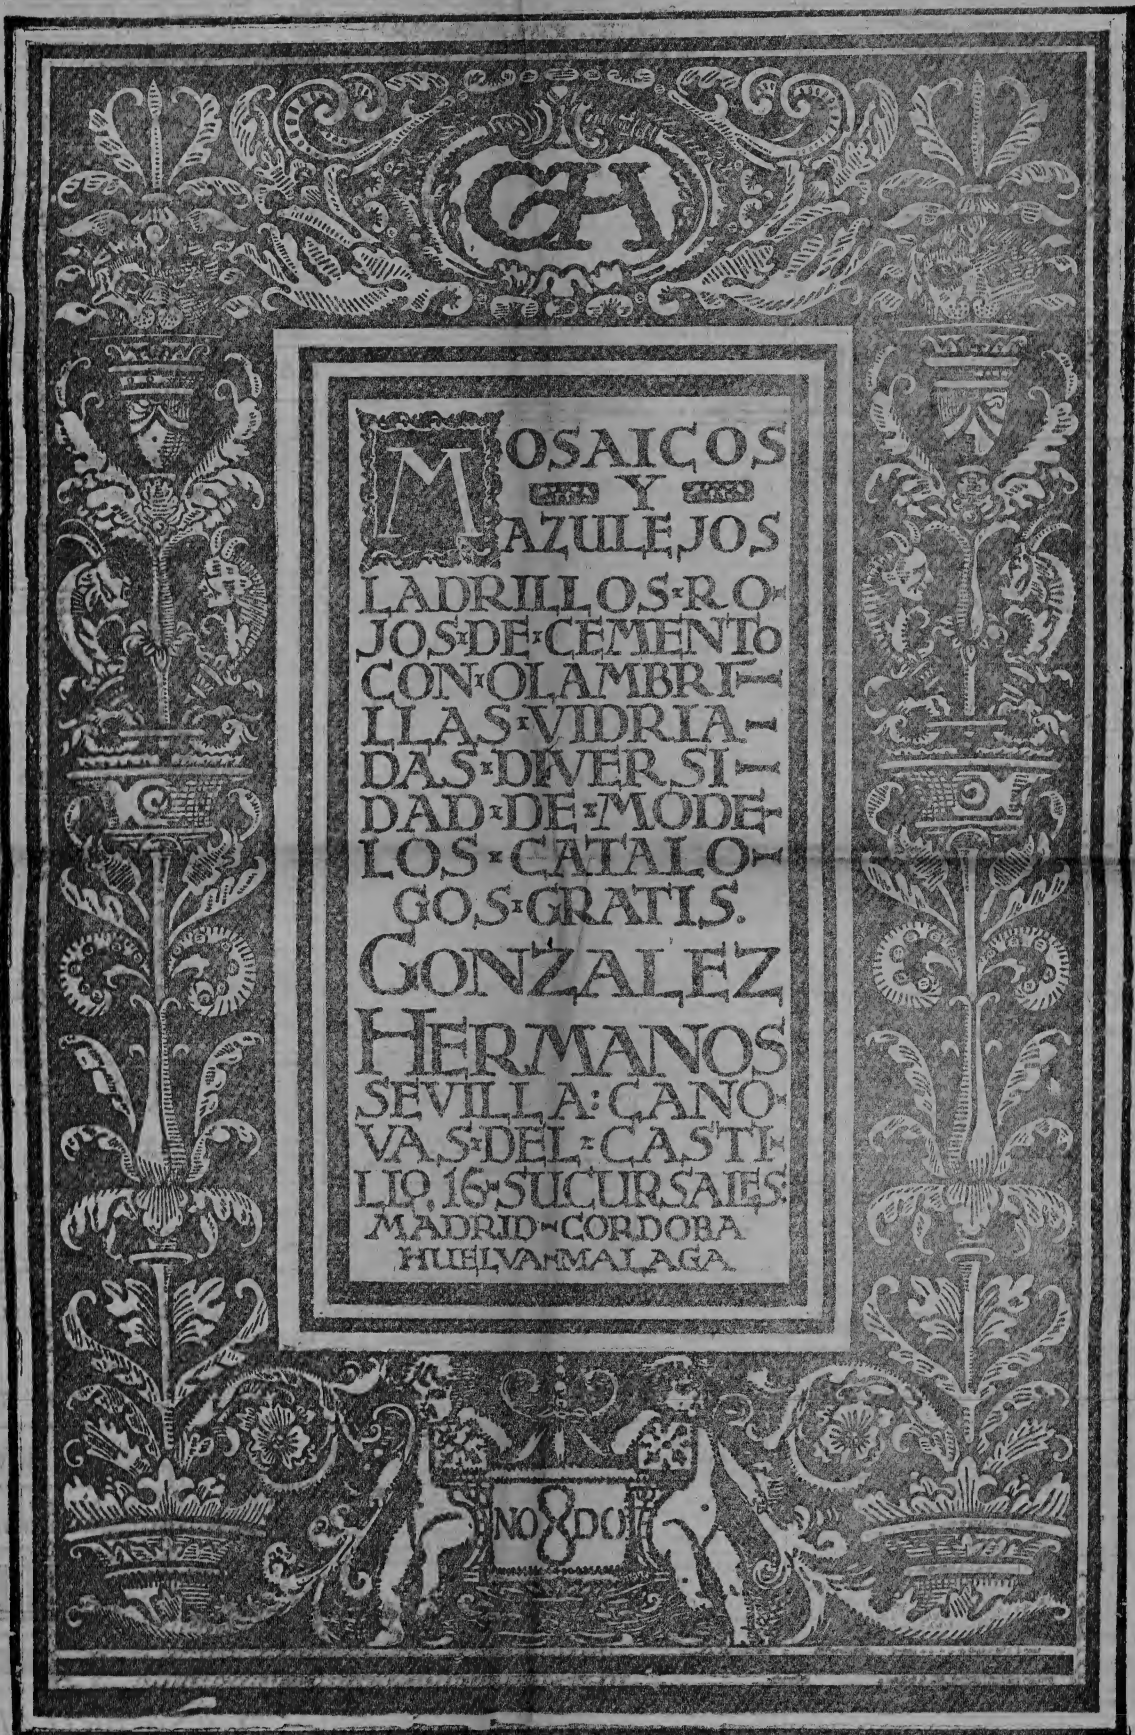 GH
MOSAICOS
Y
AZULEJOS
LADRILLOS RO-
JOS DE CEMENTO
CON OLAMBRI-
LLAS VIDRIA-
DAS DIVERSI-
DAD DE MODE-
LOS CATALO-
GOS GRATIS.
GONZALEZ
HERMANOS
SEVILLA: CANO-
VAS DEL CASTI-
LLO, 16 SUCURSALES:
MADRID-CORDOBA
HUELVA-MALAGA
NO8DO